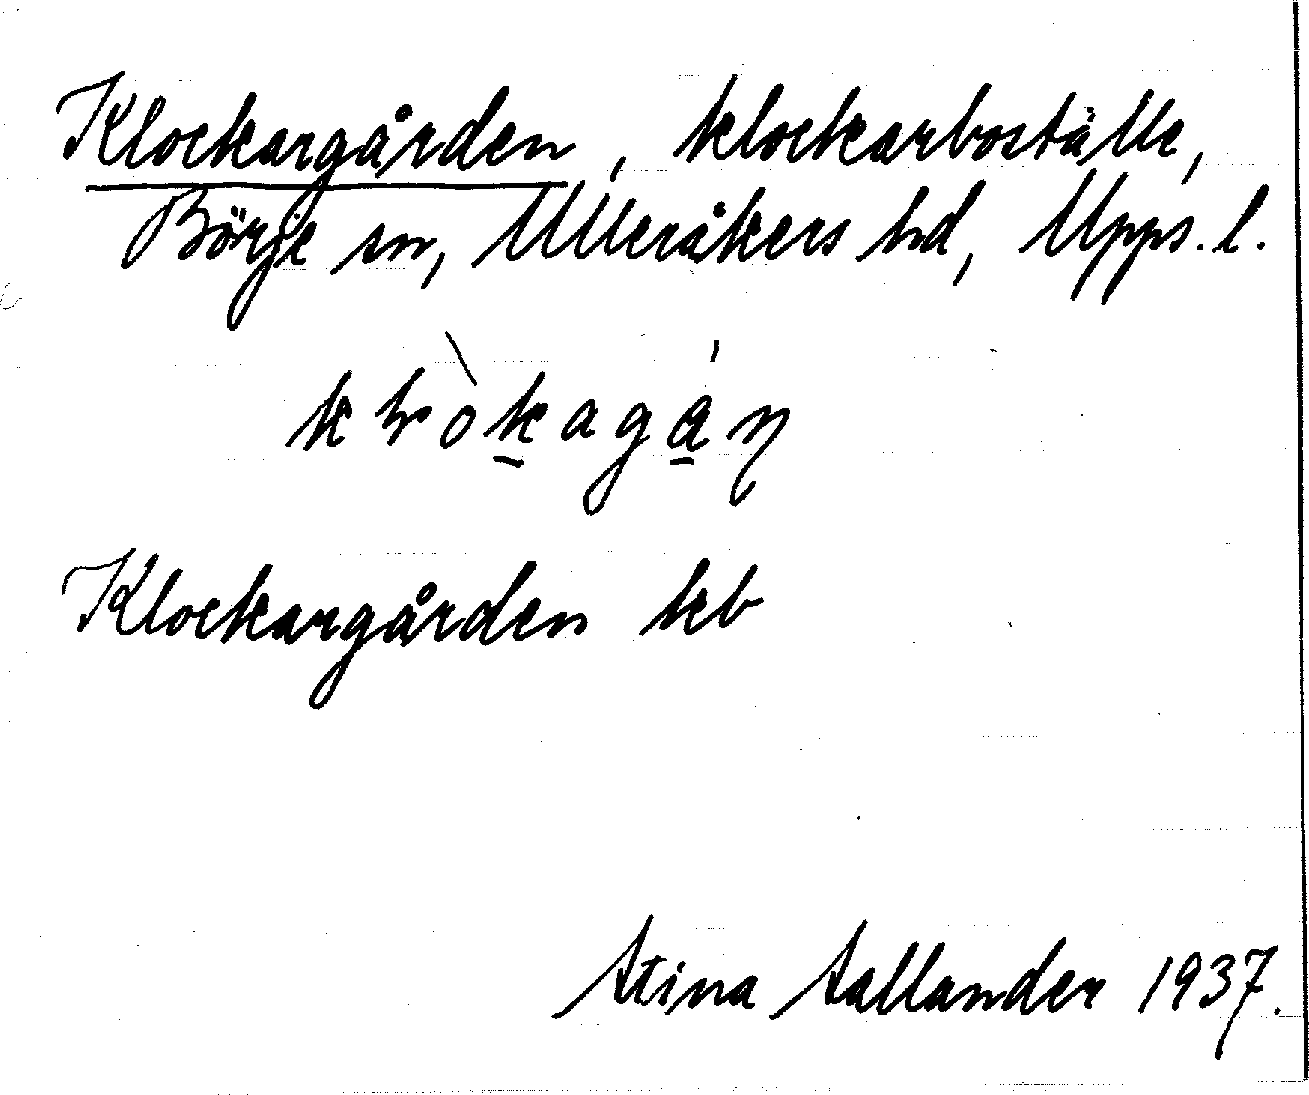 Klockargården, klockarboställe,
Börje sn, Ulleråkers hd, Upps. l.
Klockargården kb
Stina Sallander 1937.